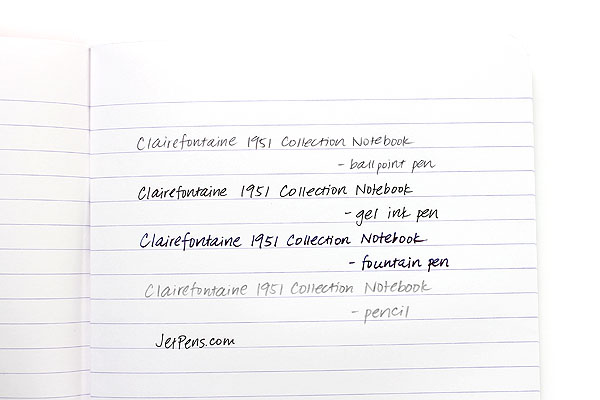 Clairefontaine 1951 Collection Notebook
- ballpoint pen
Clairefontaine 1951 Collection Notebook
- gel ink pen
Clairefontaine 1951 Collection Notebook
- fountain pen
Clairefontaine 1951 Collection Notebook
- pencil
JetPens.com